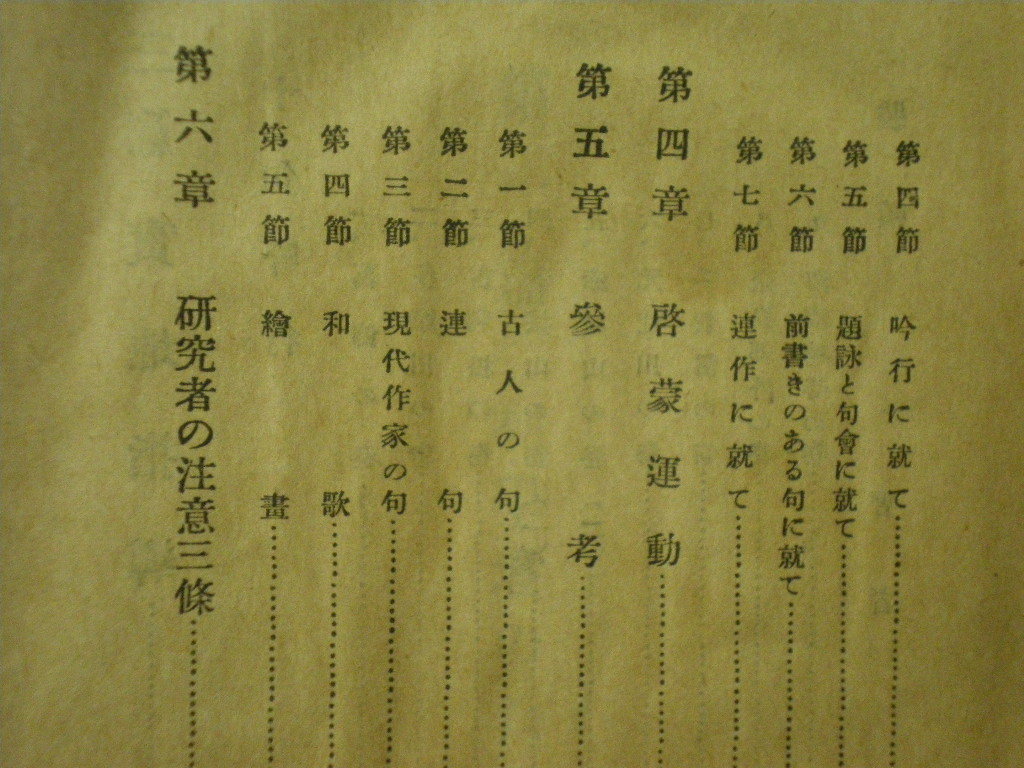 第四節 吟行に就て
第五節 題詠と句會に就て
第六節 前書きのある句に就て
第七節 連作に就て
第四章 啓蒙運動
第五章 參考
第一節 古人の句
第二節 連句
第三節 現代作家の句
第四節 和歌
第五節 繪畫
第六章 研究者の注意三條